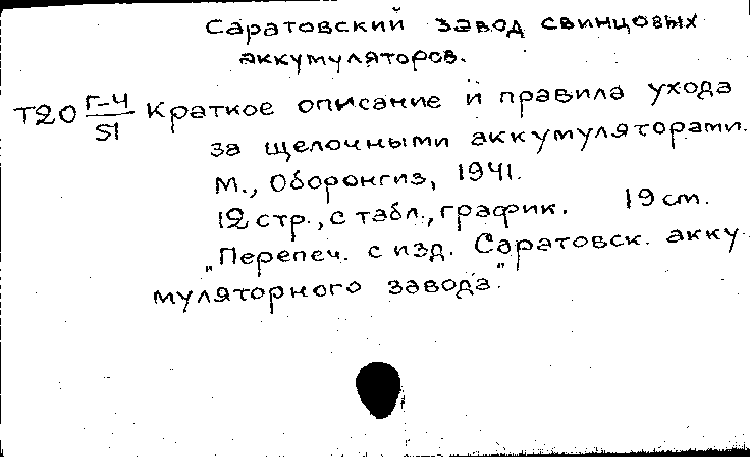 Саратовский завод свинцовых
аккумуляторов.
Т20 Г-4/51 Краткое описание и правила ухода
за щелочными аккумуляторами.
М., Оборонгиз, 1941.
12 стр., с табл., график. 19 см.
„Перепеч. с изд. Саратовск. акку-
муляторного завода"